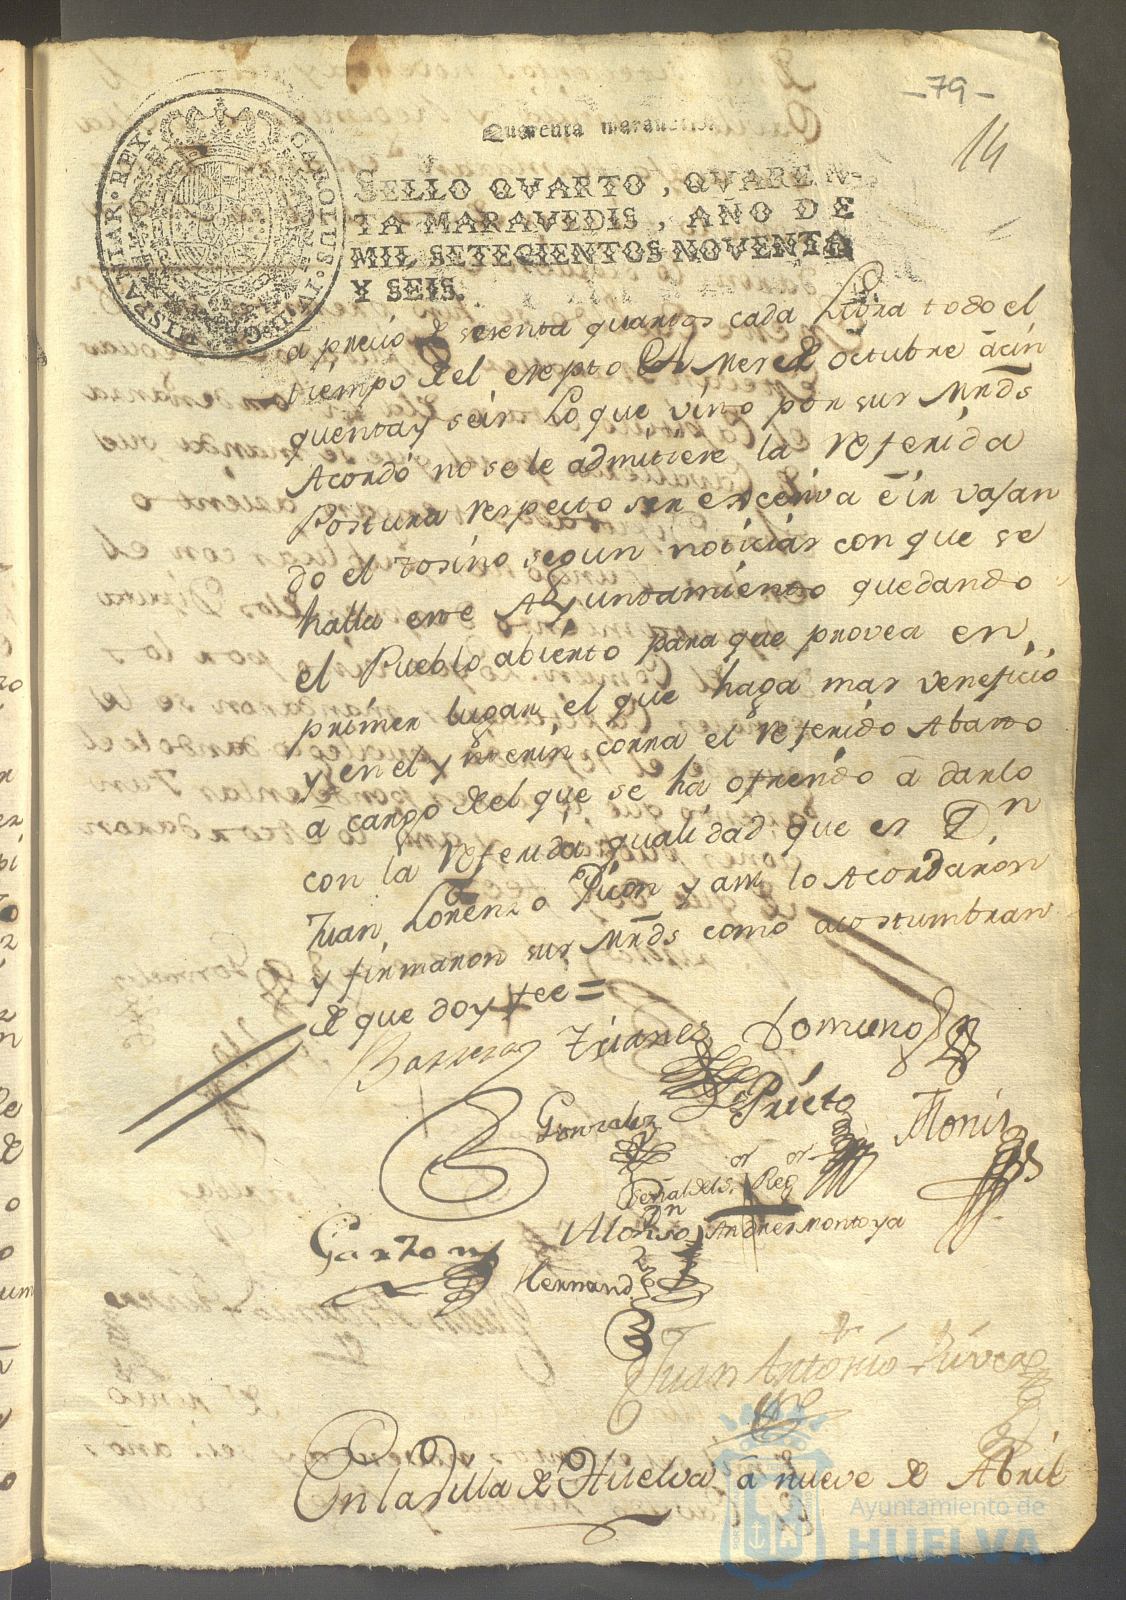 -79-
14
Quarenta maravedis.
SELLO QVARTO, QVAREN-
TA MARAVEDIS, AÑO DE
MIL SETECIENTOS NOVENTA
Y SEIS.
CAROLUS·IV·D·G· HISPANIAR·REX·
a precio de sesenta quartos cada Libra todo el
tiempo de el exepto el Mes de octubre a cin
quenta y seis Lo que visto por sus Mrds
Acordó no se le admitiese la referida
Postura respecto ser excesiva e ir vajan
do el tosino segun noticias con que se
halla este Ayuntamiento quedando
el Pueblo abierto para que provea en
primer lugar el que haga mas veneficio
y en el Ynterin corra el referido Abasto
a cargo de el que se ha ofrecido a darlo
con la referida qualidad que es Dn.
Juan Lorenzo Picon y asi lo Acordaron
y firmaron sus Mrds como acostumbran
de que doy fee =
Barreras Trianes Romero
Gonzalez Prieto Monis
Señal del Sor. Regor
Garzon Dn Alonso Andres Montoya
Hernandz
Juan Antonio Rivera
En la Villa de Huelva a nueve de Abril
Ayuntamiento de
HUELVA